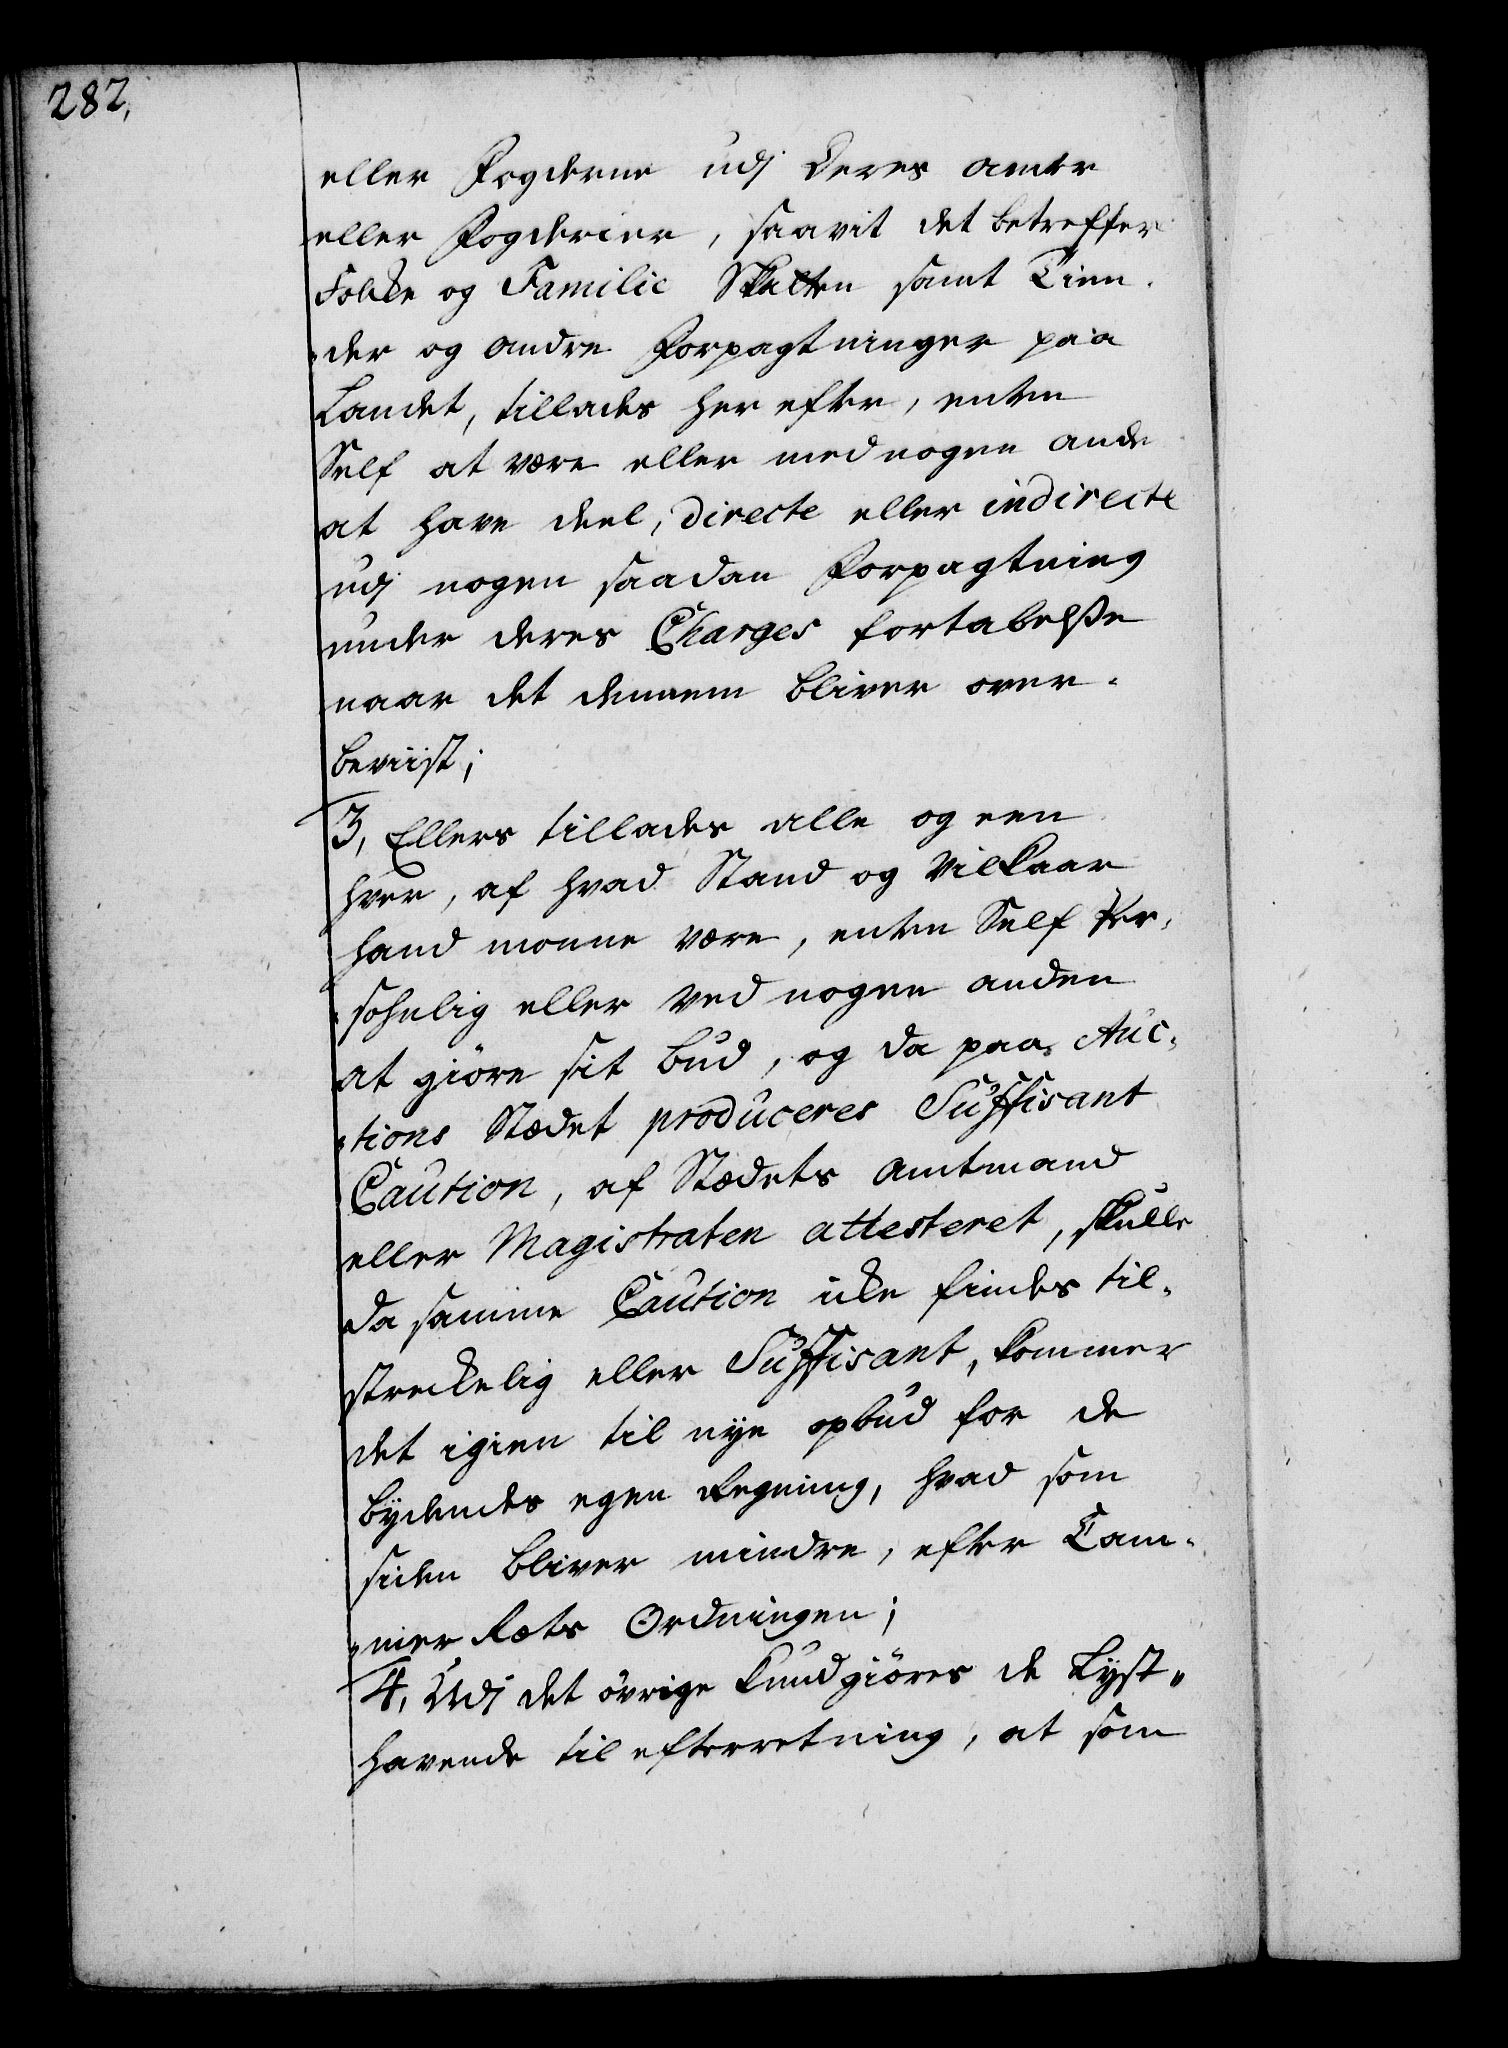 282,
eller Fogderne udj Deres amter
eller Fogderier, saavit det betreffer
Folke og Familie Skatten samt Tien-
der og andre Forpagtninger paa
Landet, tillades her efter, enten
Self at være eller med nogen ande
at have deel, directe eller indirecte
udj nogen saadan Forpagtning
under deres Charges fortabelsße
naar det dennem bliver over-
beviist;
3, Ellers tillades alle og een
hver, af hvad Stand og Vilkaar
hand monne være, enten Self Per-
sohnlig eller ved nogen anden
at giöre sit bud, og da paa Auc-
tions Stædet produceres Suffisant
Caution, af Stædets Amtmand
eller Magistraten attesteret, skulle
da samme Caution icke findes til-
streckelig eller Suffisant, kommer
det igien til nye opbud for de
bÿdendes egen Regning, hvad som
siden bliver mindre, efter Cam-
mer Rets Ordningen;
4, Udj det övrige kundgiöres de Lyst-
havende til efterretning, at som